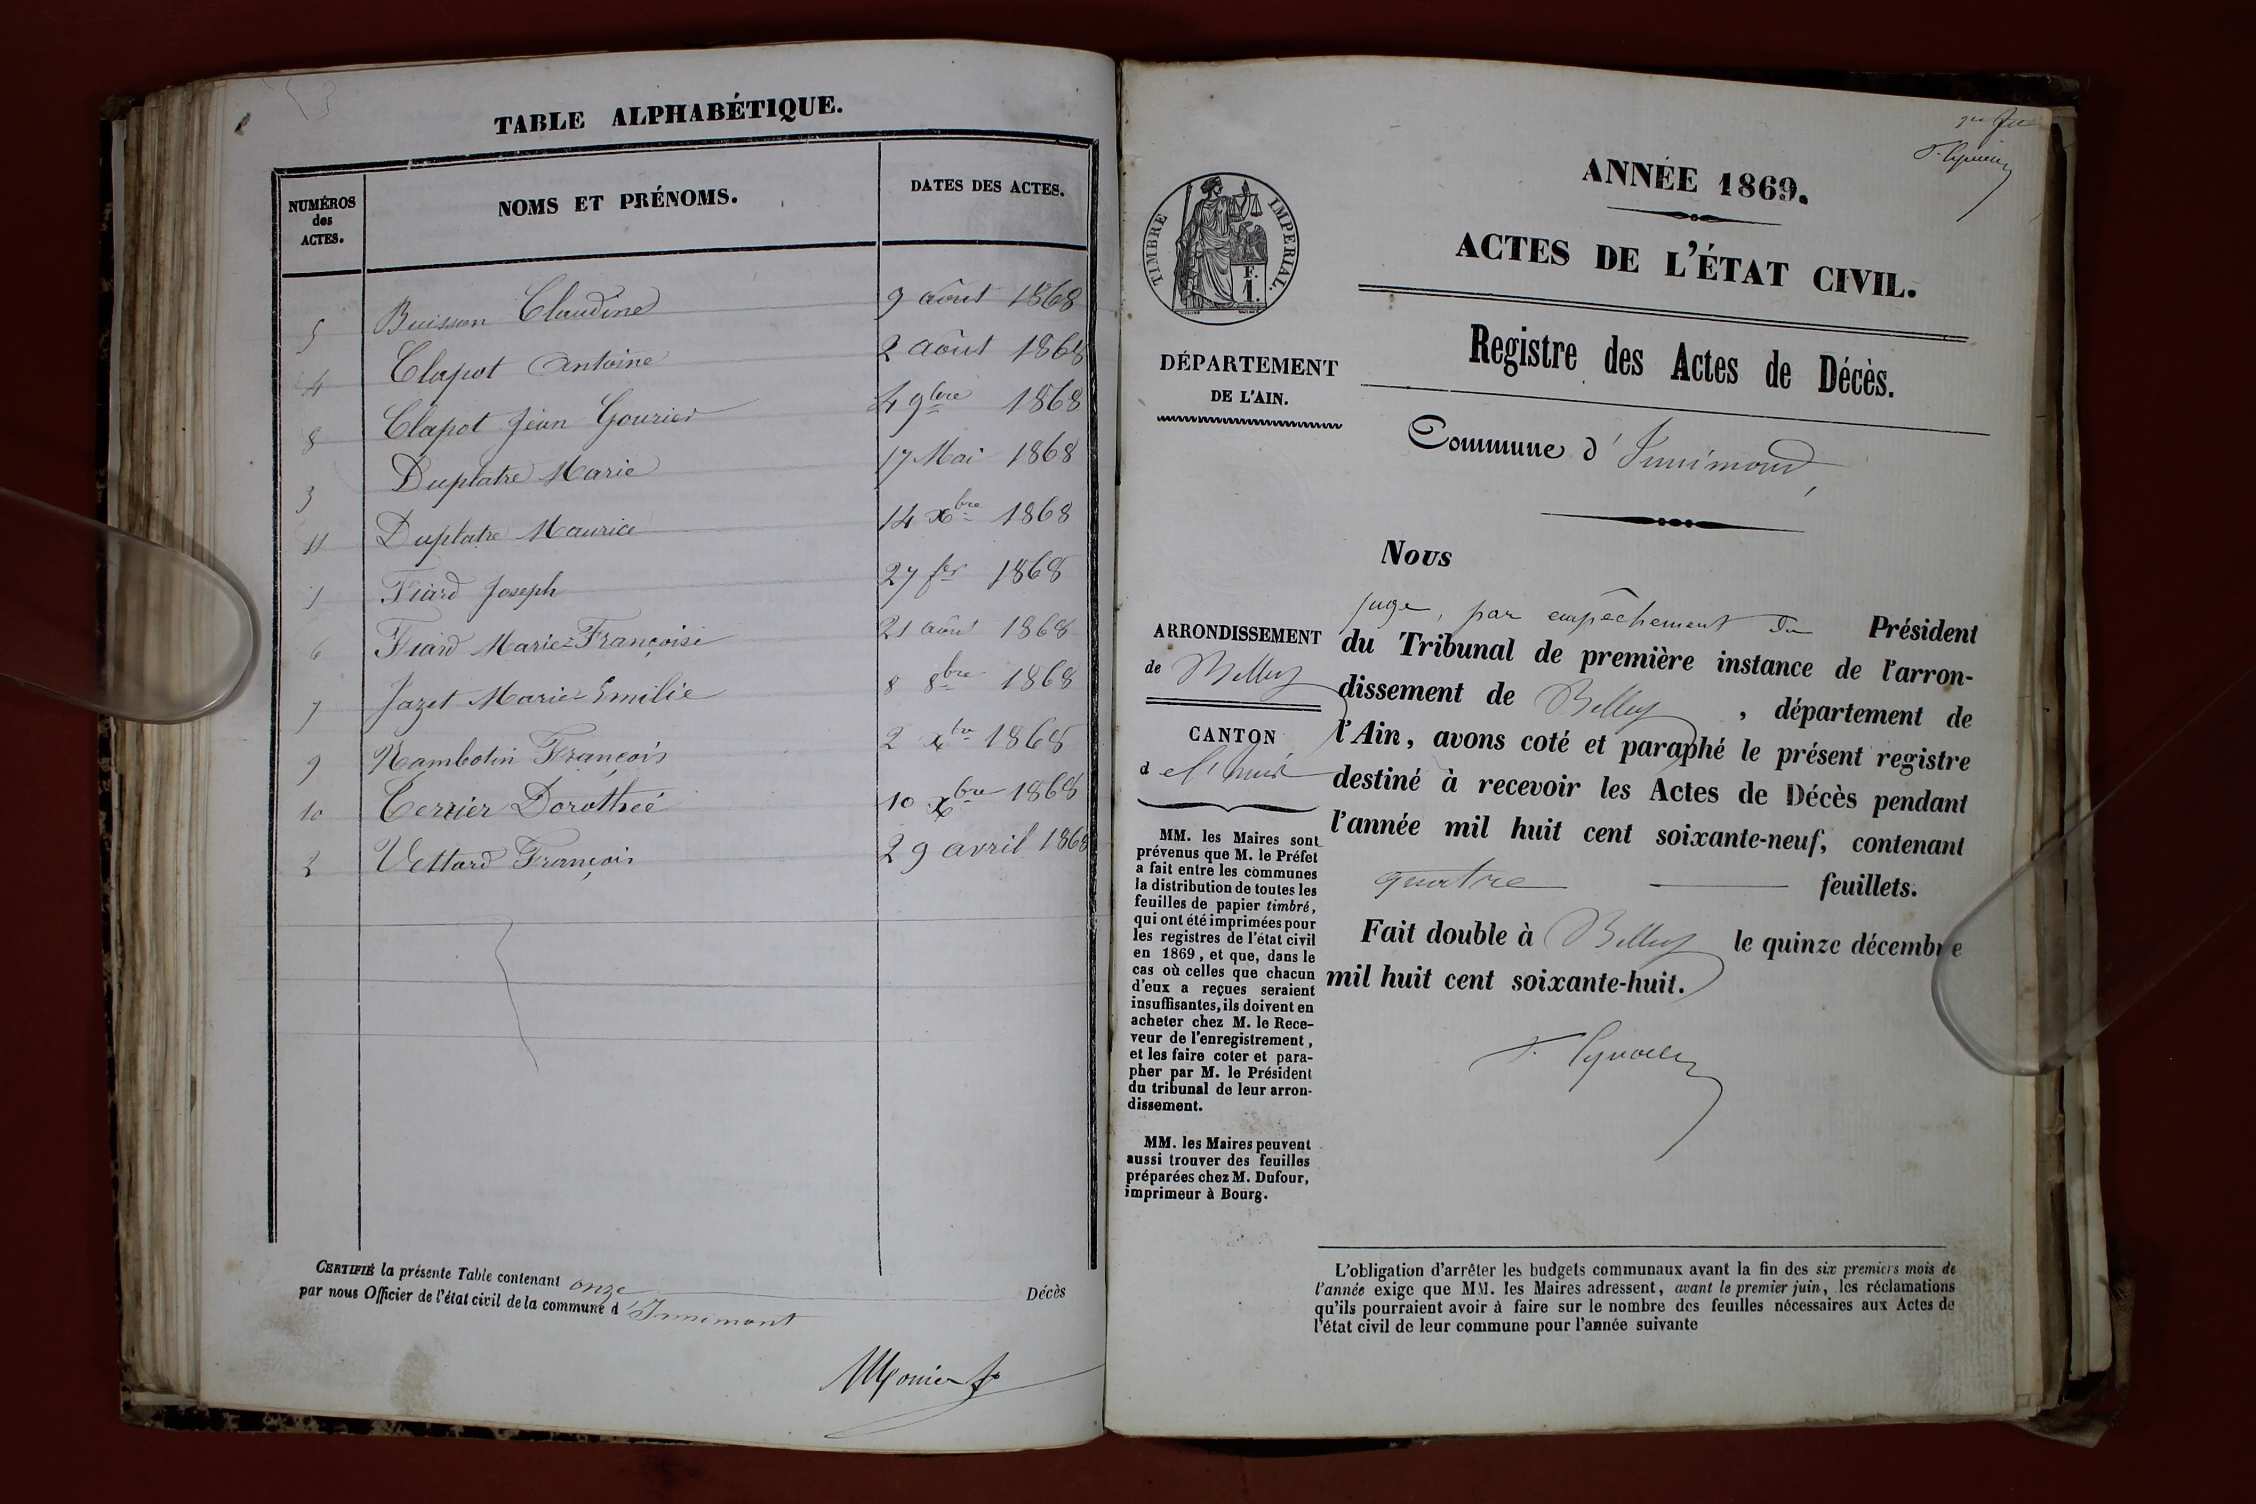 TABLE ALPHABÉTIQUE.
NUMÉROS des ACTES. NOMS ET PRÉNOMS. DATES DES ACTES.
5 Buisson Claudine 9 août 1868
4 Clapot Antoine 2 août 1868
8 Clapot Jean Gourier 4 9bre 1868
3 Duplatre Marie 17 Mai 1868
11 Duplatre Maurice 14 xbre 1868
1 Fiard Joseph 27 fer 1868
6 Fiard Marie-Françoise 21 août 1868
7 Jazet Marie-Emilie 8 8bre 1868
9 Nambotin François 2 xbre 1868
10 Terrier Dorothée 10 xbre 1868
2 Vettard François 29 avril 1868
CERTIFIÉ la présente Table contenant onze Décès
par nous Officier de l'état civil de la commune d'Innimont
Monier
ANNÉE 1869.
ACTES DE L'ÉTAT CIVIL.
TIMBRE IMPERIAL.
F.
1.
Registre des Actes de Décès.
DÉPARTEMENT
DE L'AIN.
Commune d'Innimond,
Nous
juge, par empêchement du Président
du Tribunal de première instance de l'arron-
dissement de Belley, département de
l'Ain, avons coté et paraphé le présent registre
destiné à recevoir les Actes de Décès pendant
l'année mil huit cent soixante-neuf, contenant
quatre feuillets.
Fait double à Belley le quinze décembre
mil huit cent soixante-huit.
ARRONDISSEMENT
de Belley
CANTON
d
MM. les Maires sont
prévenus que M. le Préfet
a fait entre les communes
la distribution de toutes les
feuilles de papier timbré,
qui ont été imprimées pour
les registres de l'état civil
en 1869, et que, dans le
cas où celles que chacun
d'eux a reçues seraient
insuffisantes, ils doivent en
acheter chez M. le Rece-
veur de l'enregistrement,
et les faire coter et para-
pher par M. le Président
du tribunal de leur arron-
dissement.
MM. les Maires peuvent
aussi trouver des feuilles
préparées chez M. Dufour,
imprimeur à Bourg.
L'obligation d'arrêter les budgets communaux avant la fin des six premiers mois de
l'année exige que MM. les Maires adressent, avant le premier juin, les réclamations
qu'ils pourraient avoir à faire sur le nombre des feuilles nécessaires aux Actes de
l'état civil de leur commune pour l'année suivante